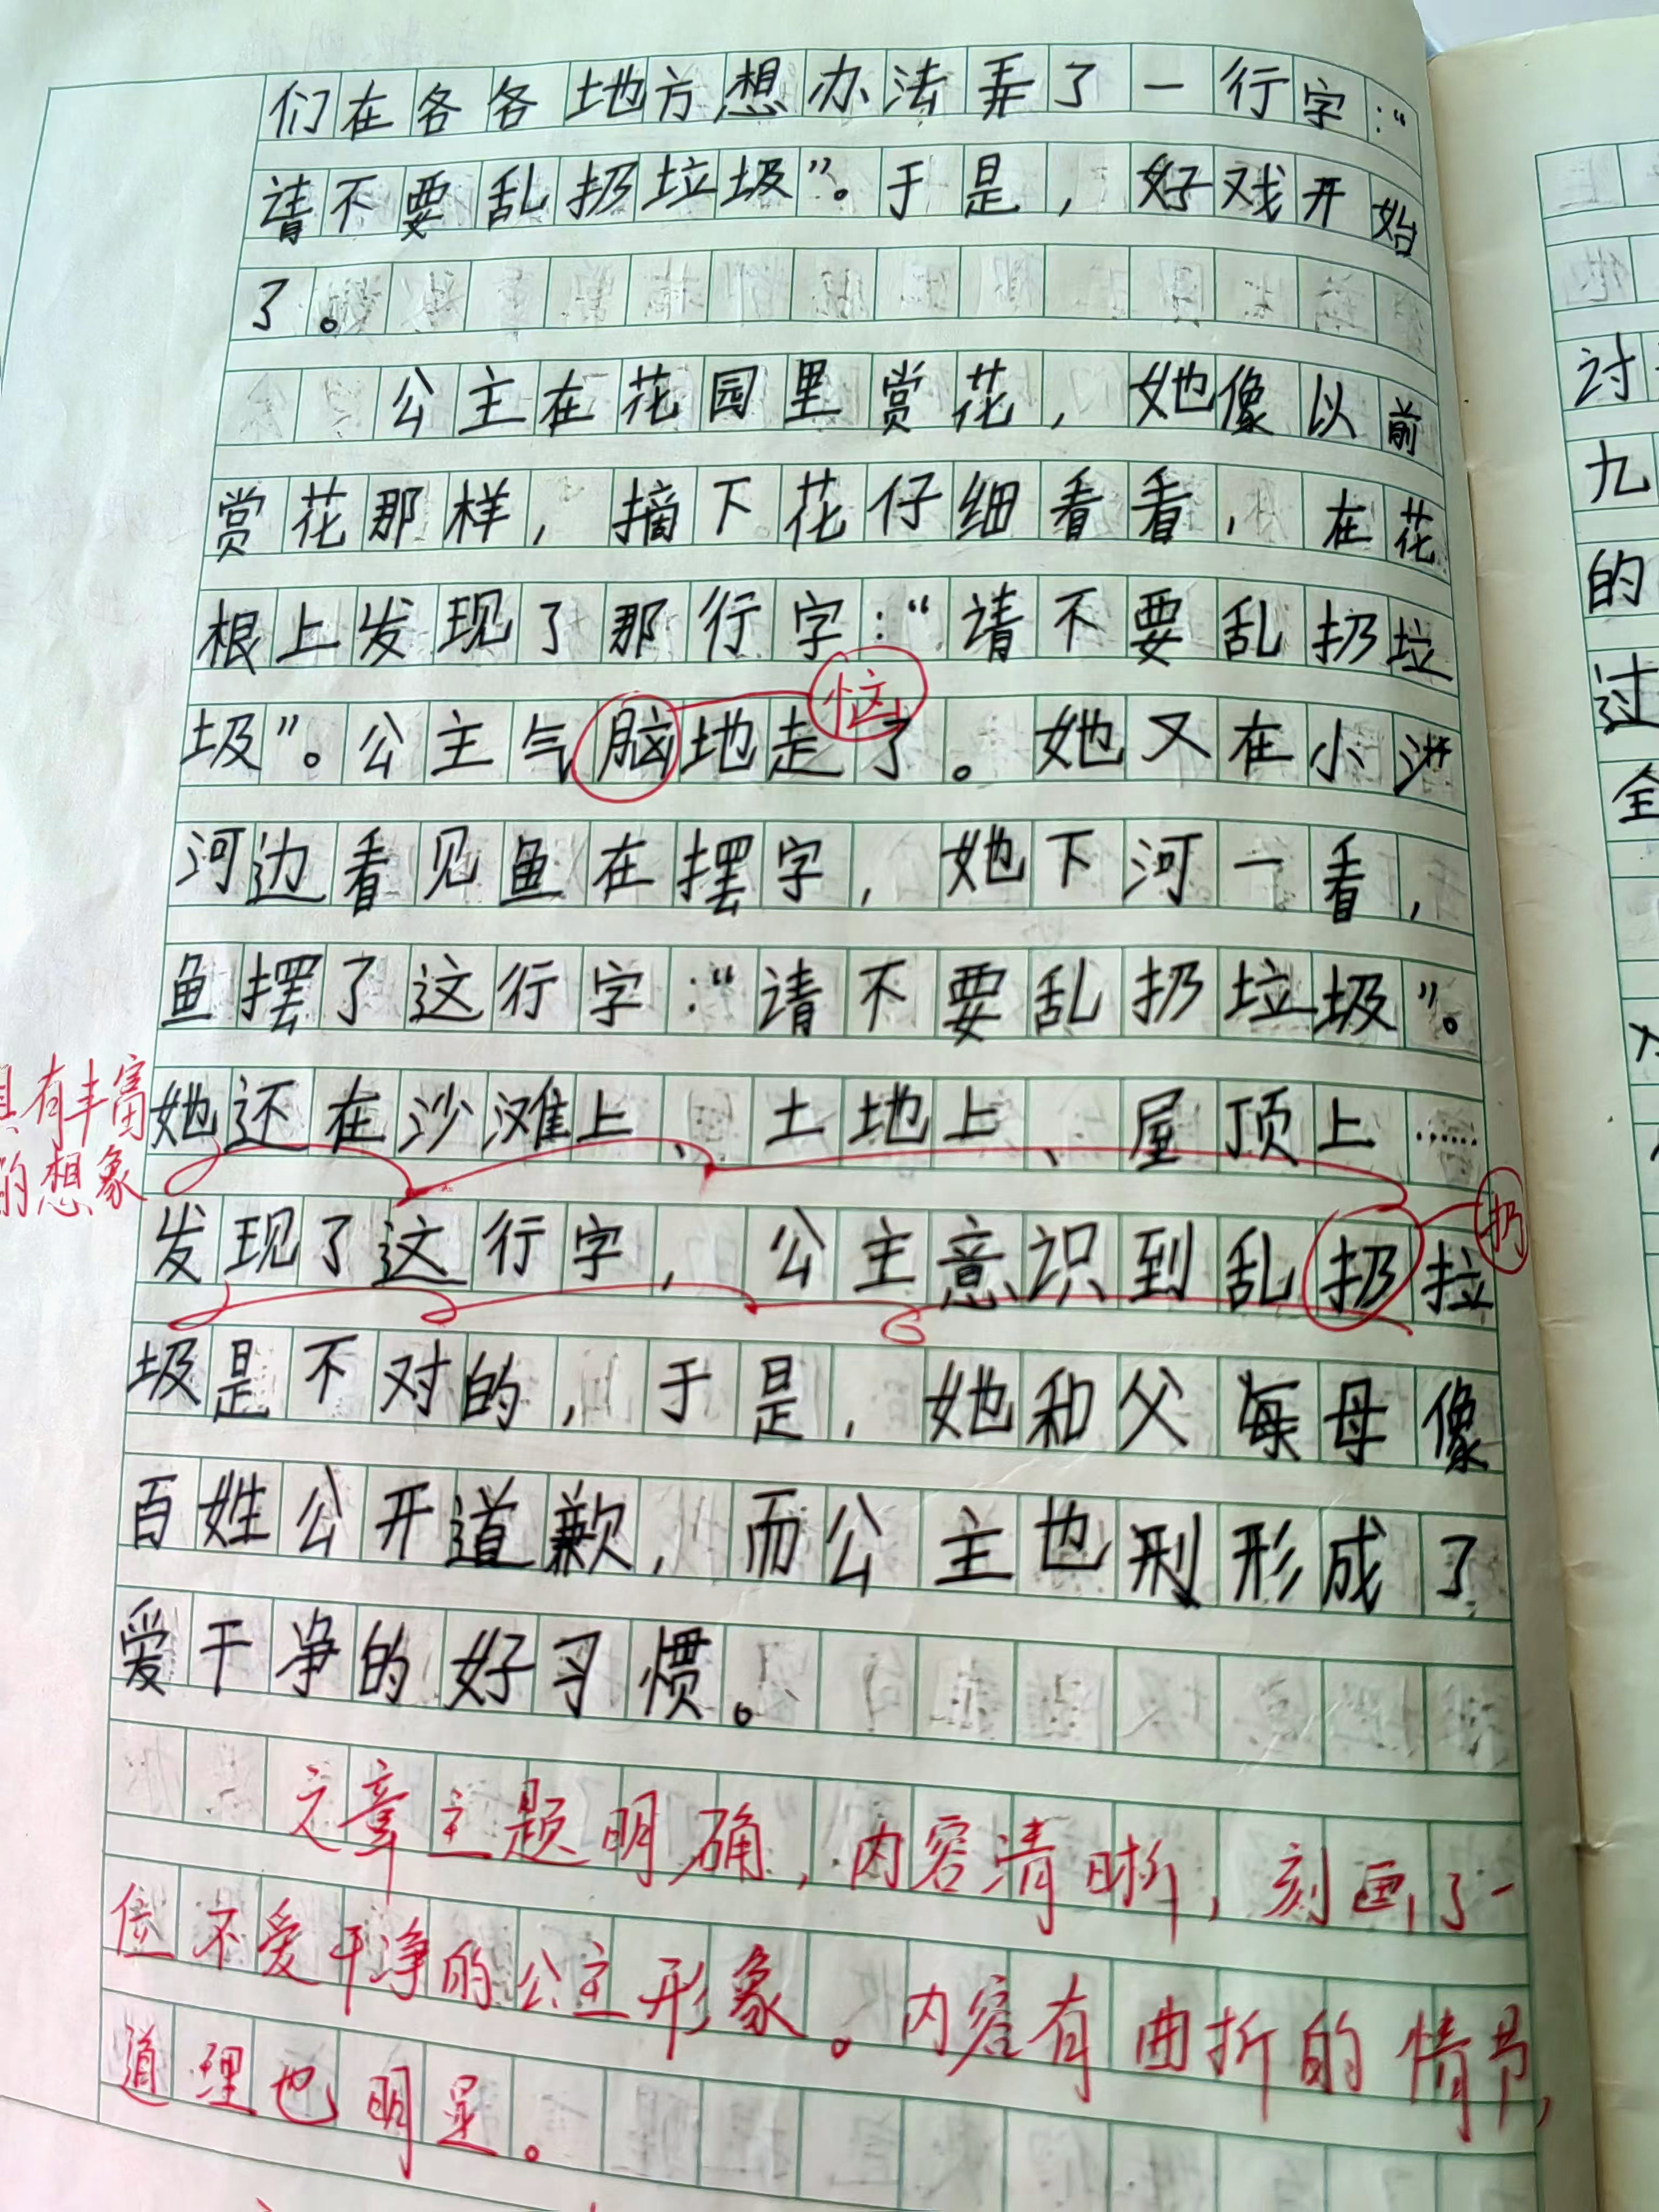 们在各各地方想办法弄了一行字：“
请不要乱扔垃圾”。于是，好戏开始
了。
公主在花园里赏花，她像以前
赏花那样，摘下花仔细看看，在花
根上发现了那行字：“请不要乱扔垃
恼
圾”。公主气脑地走了。她又在小
河边看见鱼在摆字，她下河一看，
鱼摆了这行字：“请不要乱扔垃圾”。
具有丰富
的想象
她还在沙滩上、土地上、屋顶上……
扔
发现了这行字，公主意识到乱扔垃
圾是不对的，于是，她和父每母像
百姓公开道歉，而公主也刑形成了
爱干净的好习惯。
文章主题明确，内容清晰，刻画了一
位不爱干净的公主形象。内容有曲折的情节，
道理也明显。
讨
九
的
过
全